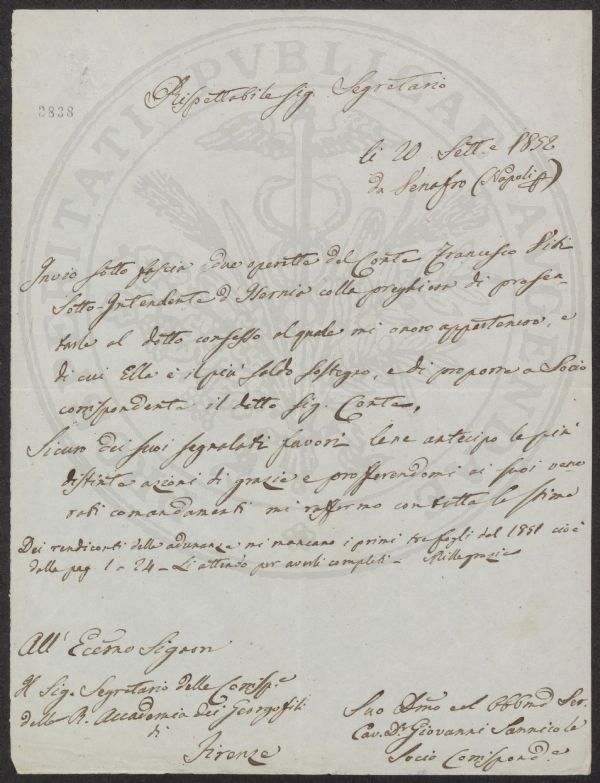 Rispettabile Sig. Segretario
3838
li 20 Sett.e 1852
da Venafro (Napoli)
Invio sotto fascia due operette del Conte Francesco Viti
Sotto-Intendente d'Isernia colla preghiera di presen-
tarle al detto consesso al quale mi onoro appartenere, e
di cui Ella è il più saldo sostegno, e di proporre a Socio
corrispondente il detto Sig. Conte.
Sicuro dei suoi segnalati favori le ne antecipo le più
distinte azioni di grazie e profferendomi ai suoi vene
rati comandamenti mi raffermo con tutta la stima
Dei rendiconti delle adunanze mi mancano i primi tre fogli del 1851 cioè
dalla pag 1 a 24 - Li attendo per averli completi - Mille grazie
All' Ecc̄mo Signor
Il Sig. Segretario delle Corrisp.e
della R. Accademia dei Georgofili
di
Firenze
Suo Dmo ed Obbmo Ser.
Cav. Dr Giovanni Sannicola
Socio Corrispond.e